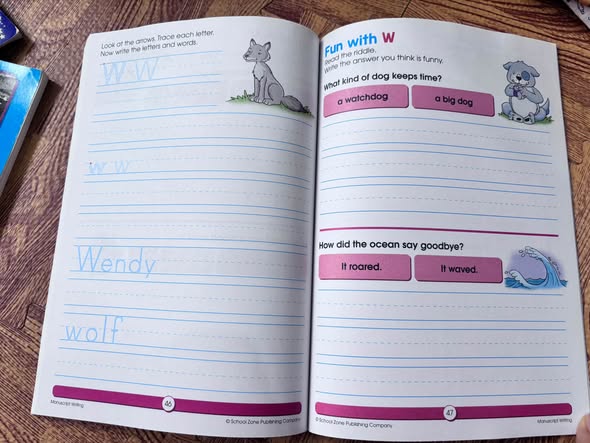 Look at the arrows. Trace each letter.
Now write the letters and words.
W W
w w
Wendy
wolf
Manuscript Writing
46
© School Zone Publishing Company
Fun with W
Read the riddle.
Write the answer you think is funny.
What kind of dog keeps time?
a watchdog
a big dog
How did the ocean say goodbye?
It roared.
It waved.
© School Zone Publishing Company
47
Manuscript Writing